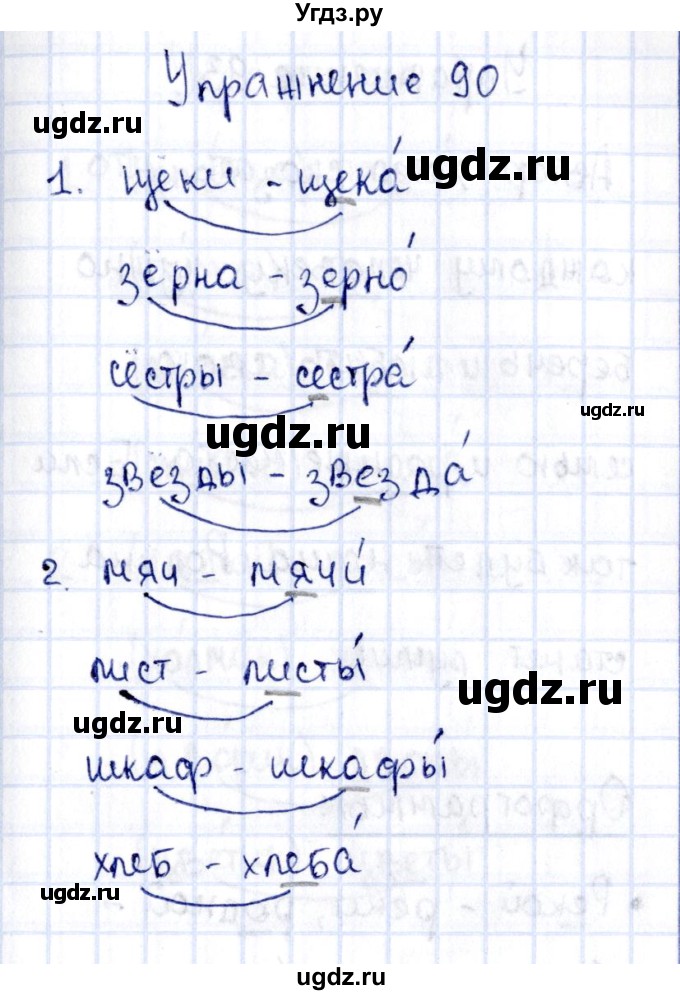 Угдз.ру
Упражнение 90
ugdz.ru
1. щёки - щека́
ugdz.ru
зёрна - зерно́
сёстры - сестра́
ugdz.ru
ugdz.ru
звёзды - звезда́
2. мяч - мячи́
лист - листы́
ugdz.ru
ugdz.ru
шкаф - шкафы́
хлеб - хлеба́
ugdz.ru
ugdz.ru